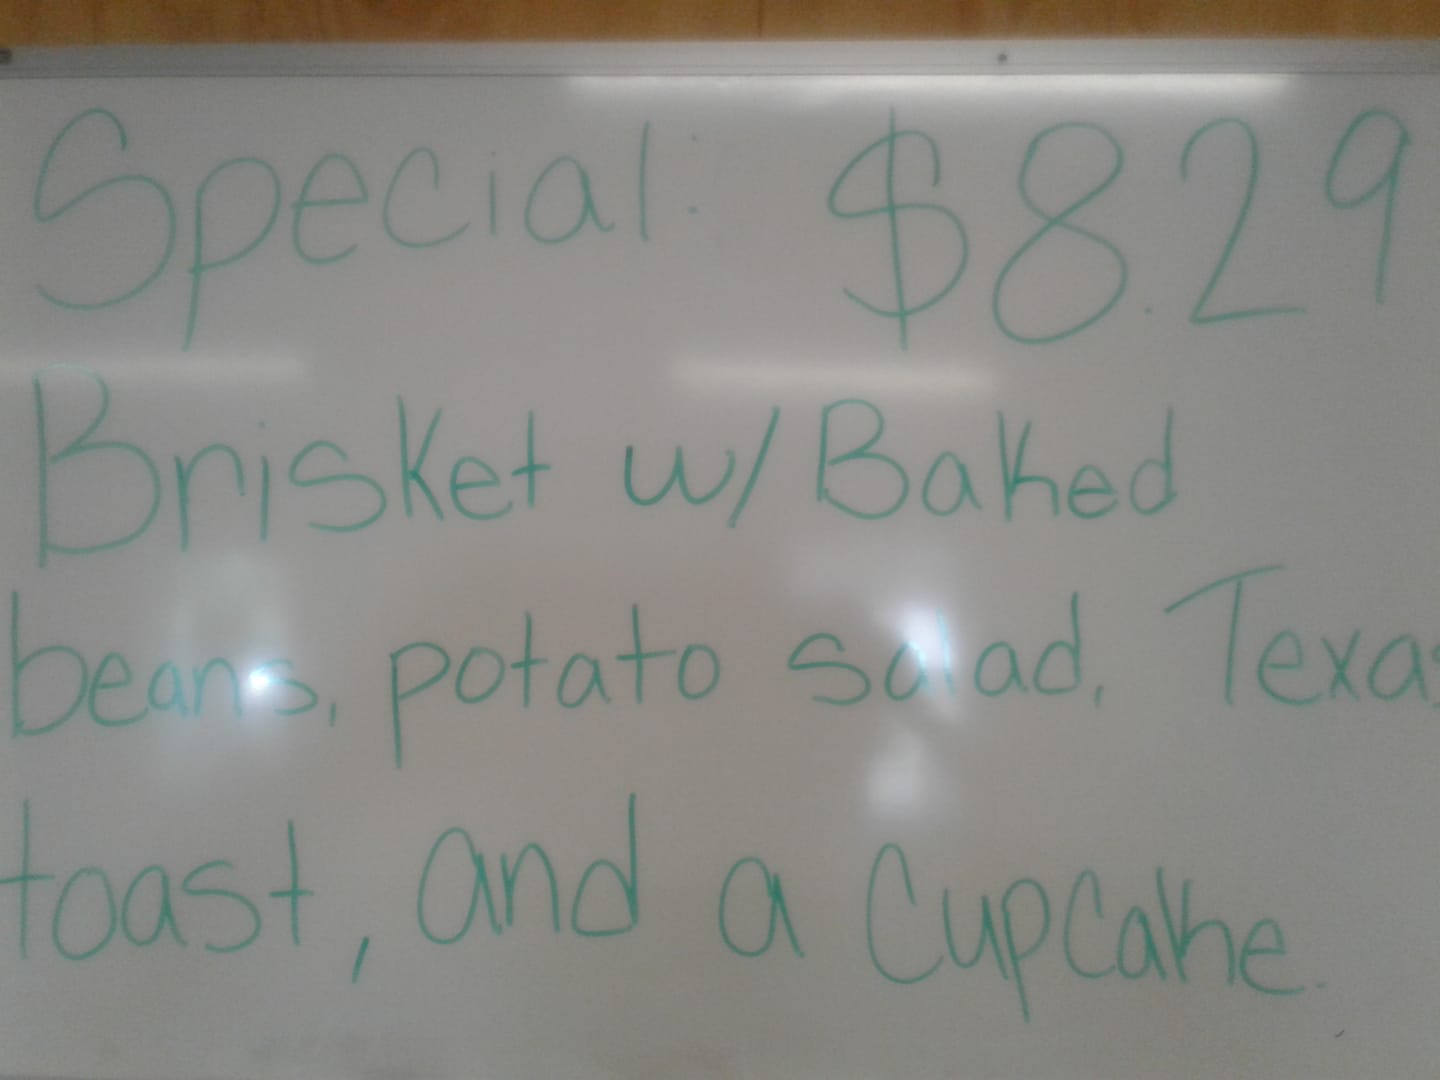 Special: $8.29
Brisket w/ Baked
beans, potato salad, Texas
toast, and a Cupcake.